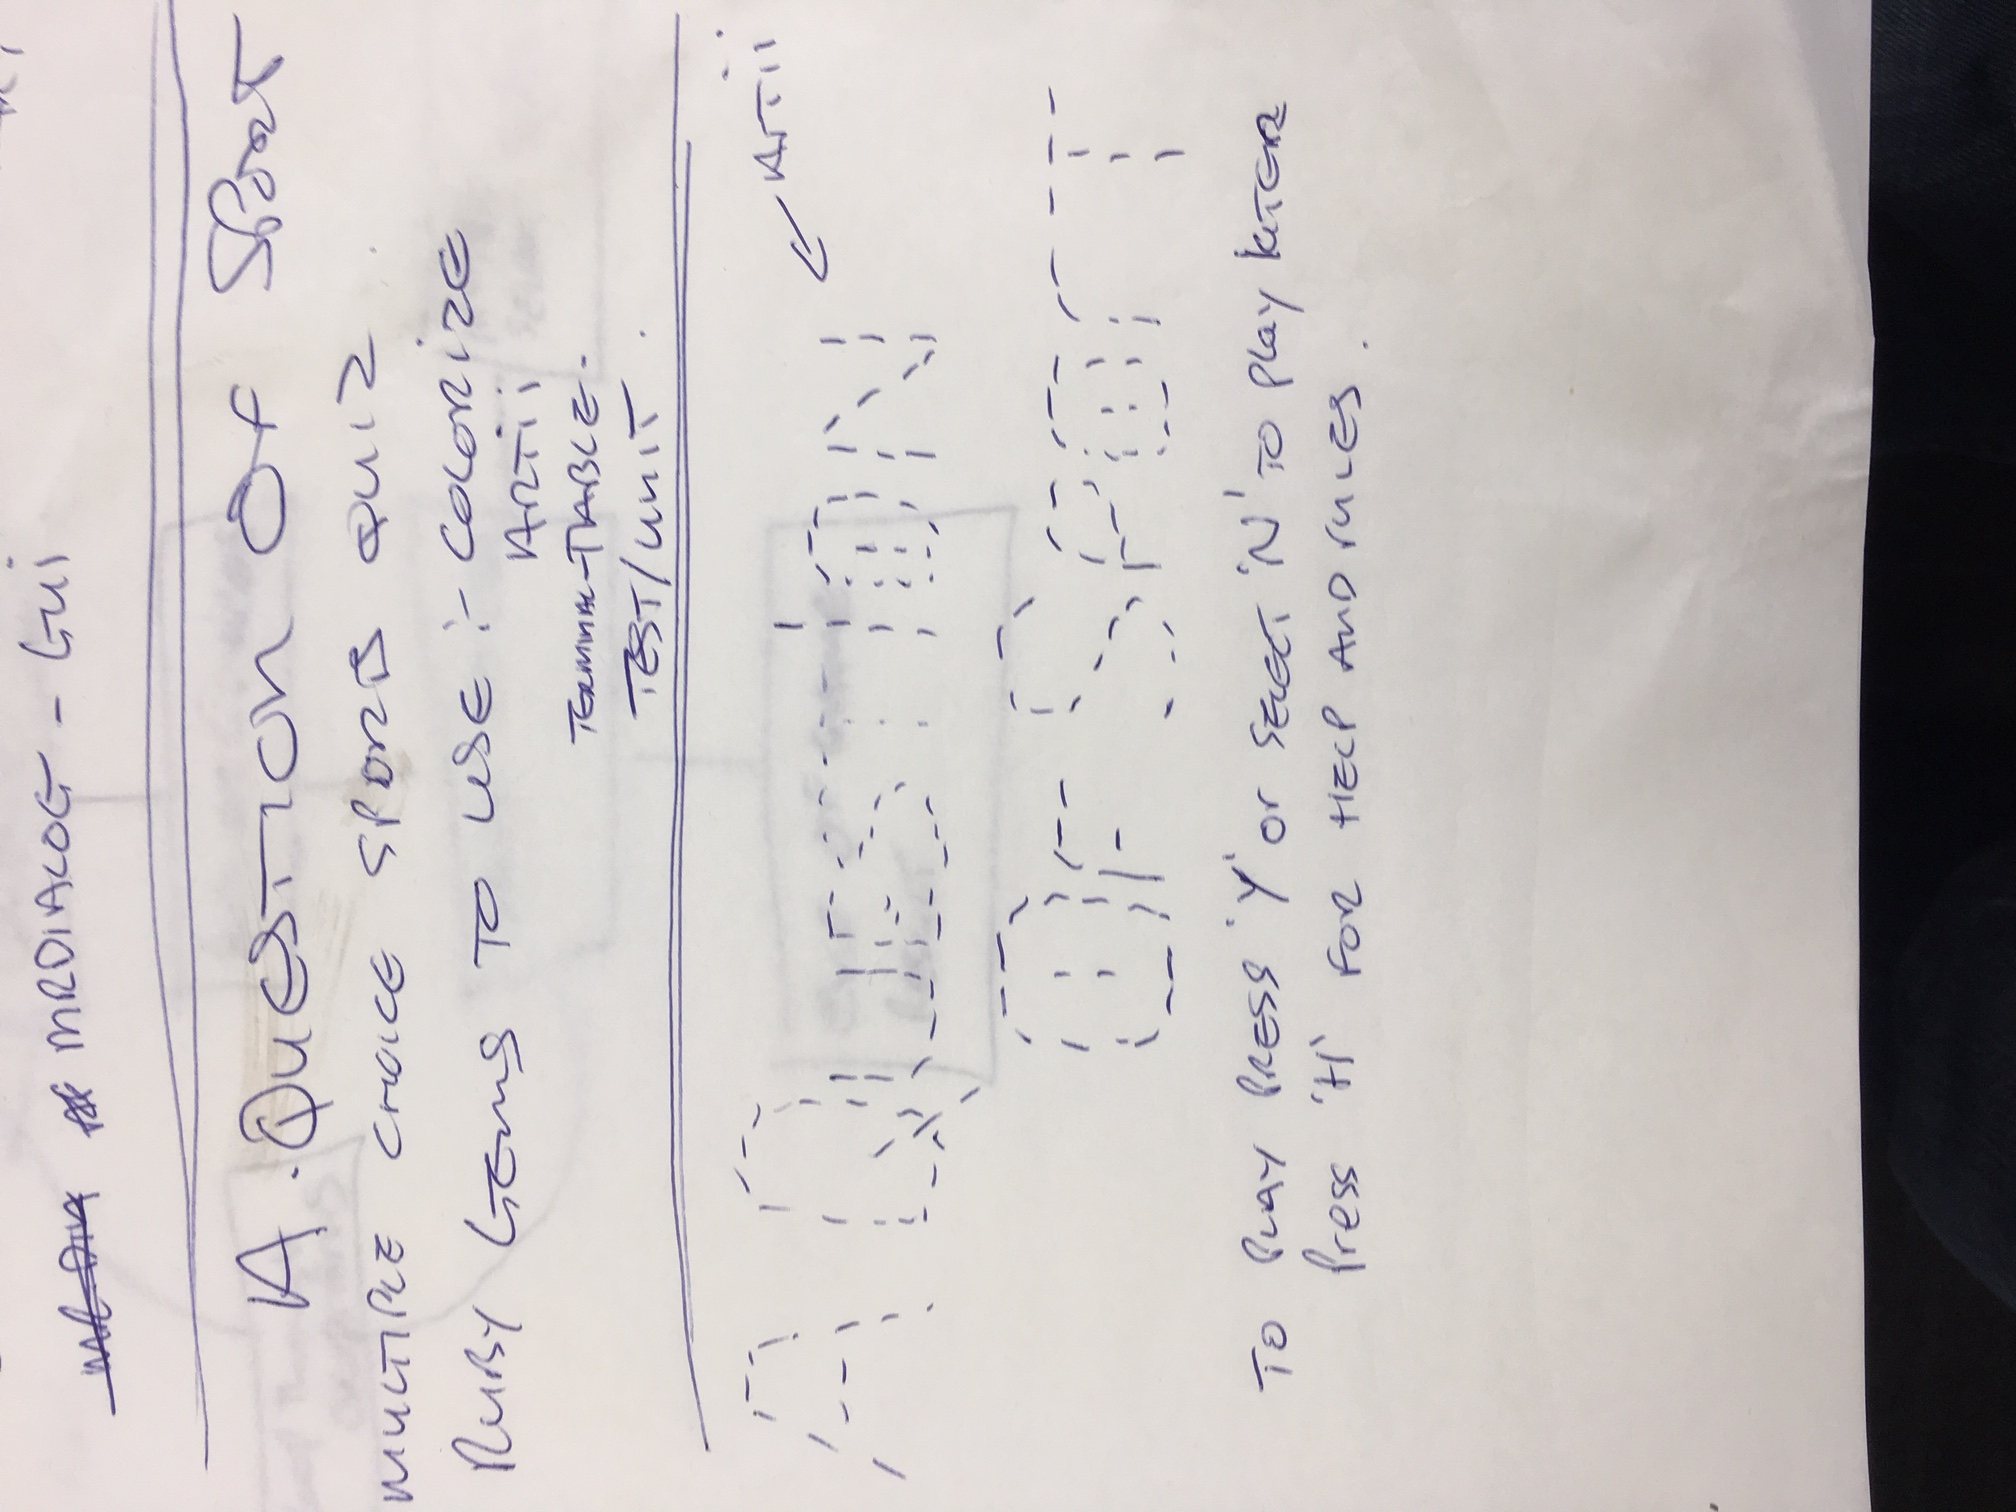 MRDIALOG - GUi
A. QUESTION OF SPORT
MULTIPLE CHOICE SPORTS QUIZ.
RUBY GEMS TO USE :- COLORIZE
ARTii
TERMINAL-TABLE-
TEST/UNIT.
ARTii
A QUESTION
OF SPORT
TO PLAY PRESS 'Y' or SELECT 'N' TO play LATER
Press 'H' FOR HELP AND RULES.